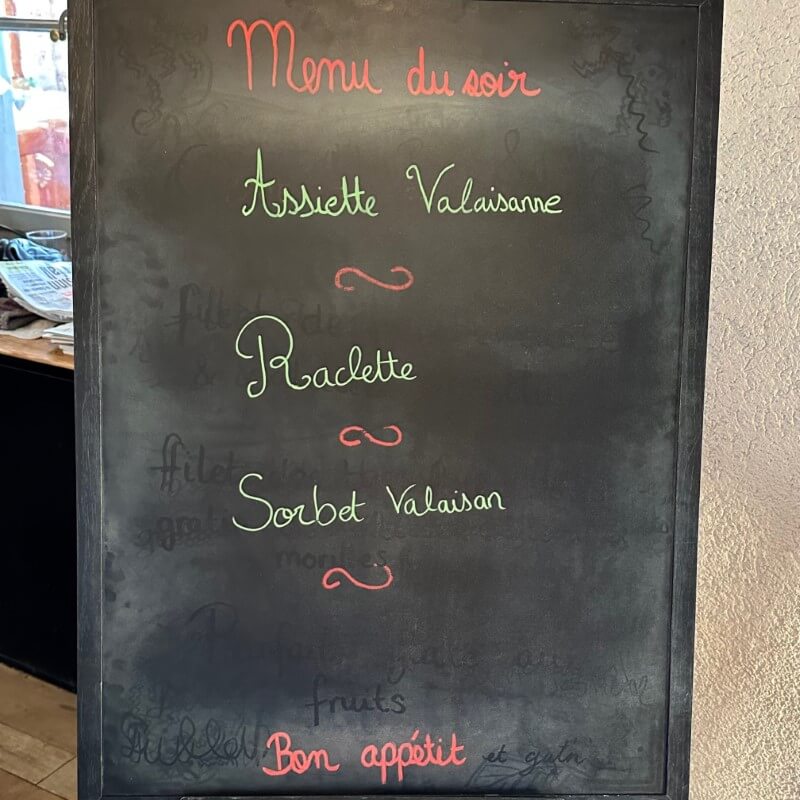 Menu du soir
Assiette Valaisanne
Raclette
Sorbet Valaisan
fruits
Bon appétit